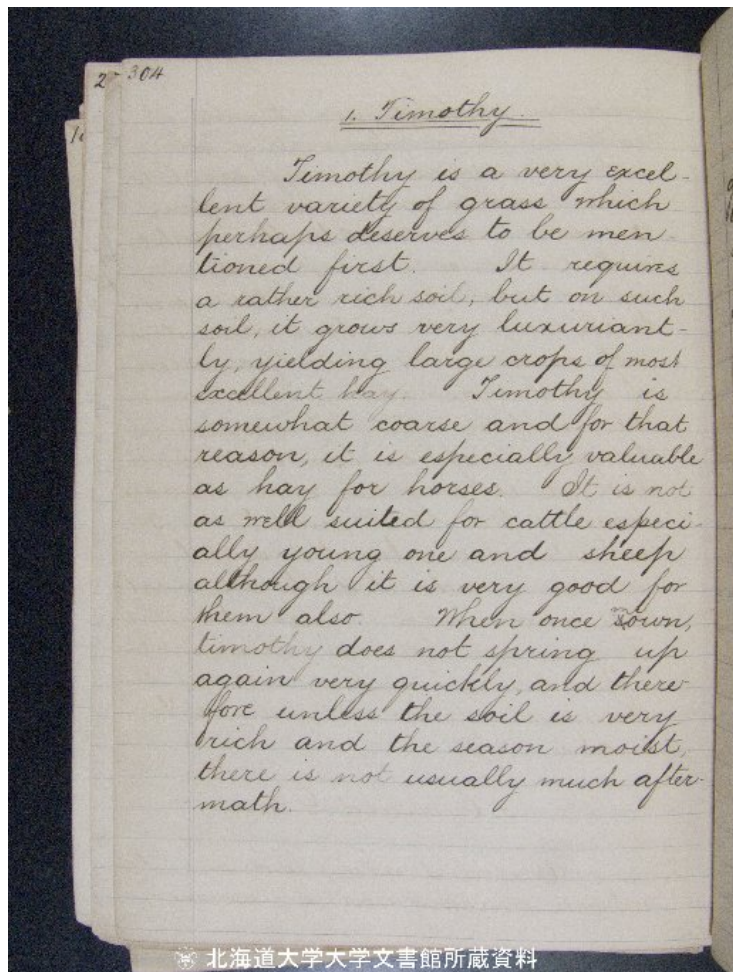 304
1. Timothy.
Timothy is a very excel-
lent variety of grass which
perhaps deserves to be men-
tioned first. It requires
a rather rich soil, but on such
soil, it grows very luxuriant-
ly, yielding large crops of most
excellent hay. Timothy is
somewhat coarse and for that
reason, it is especially valuable
as hay for horses. It is not
as well suited for cattle especi-
ally young one and sheep
although it is very good for
them also. When once sown,
timothy does not spring up
again very quickly, and there-
fore unless the soil is very
rich and the season moist,
there is not usually much after-
math.
北海道大学大学文書館所蔵資料